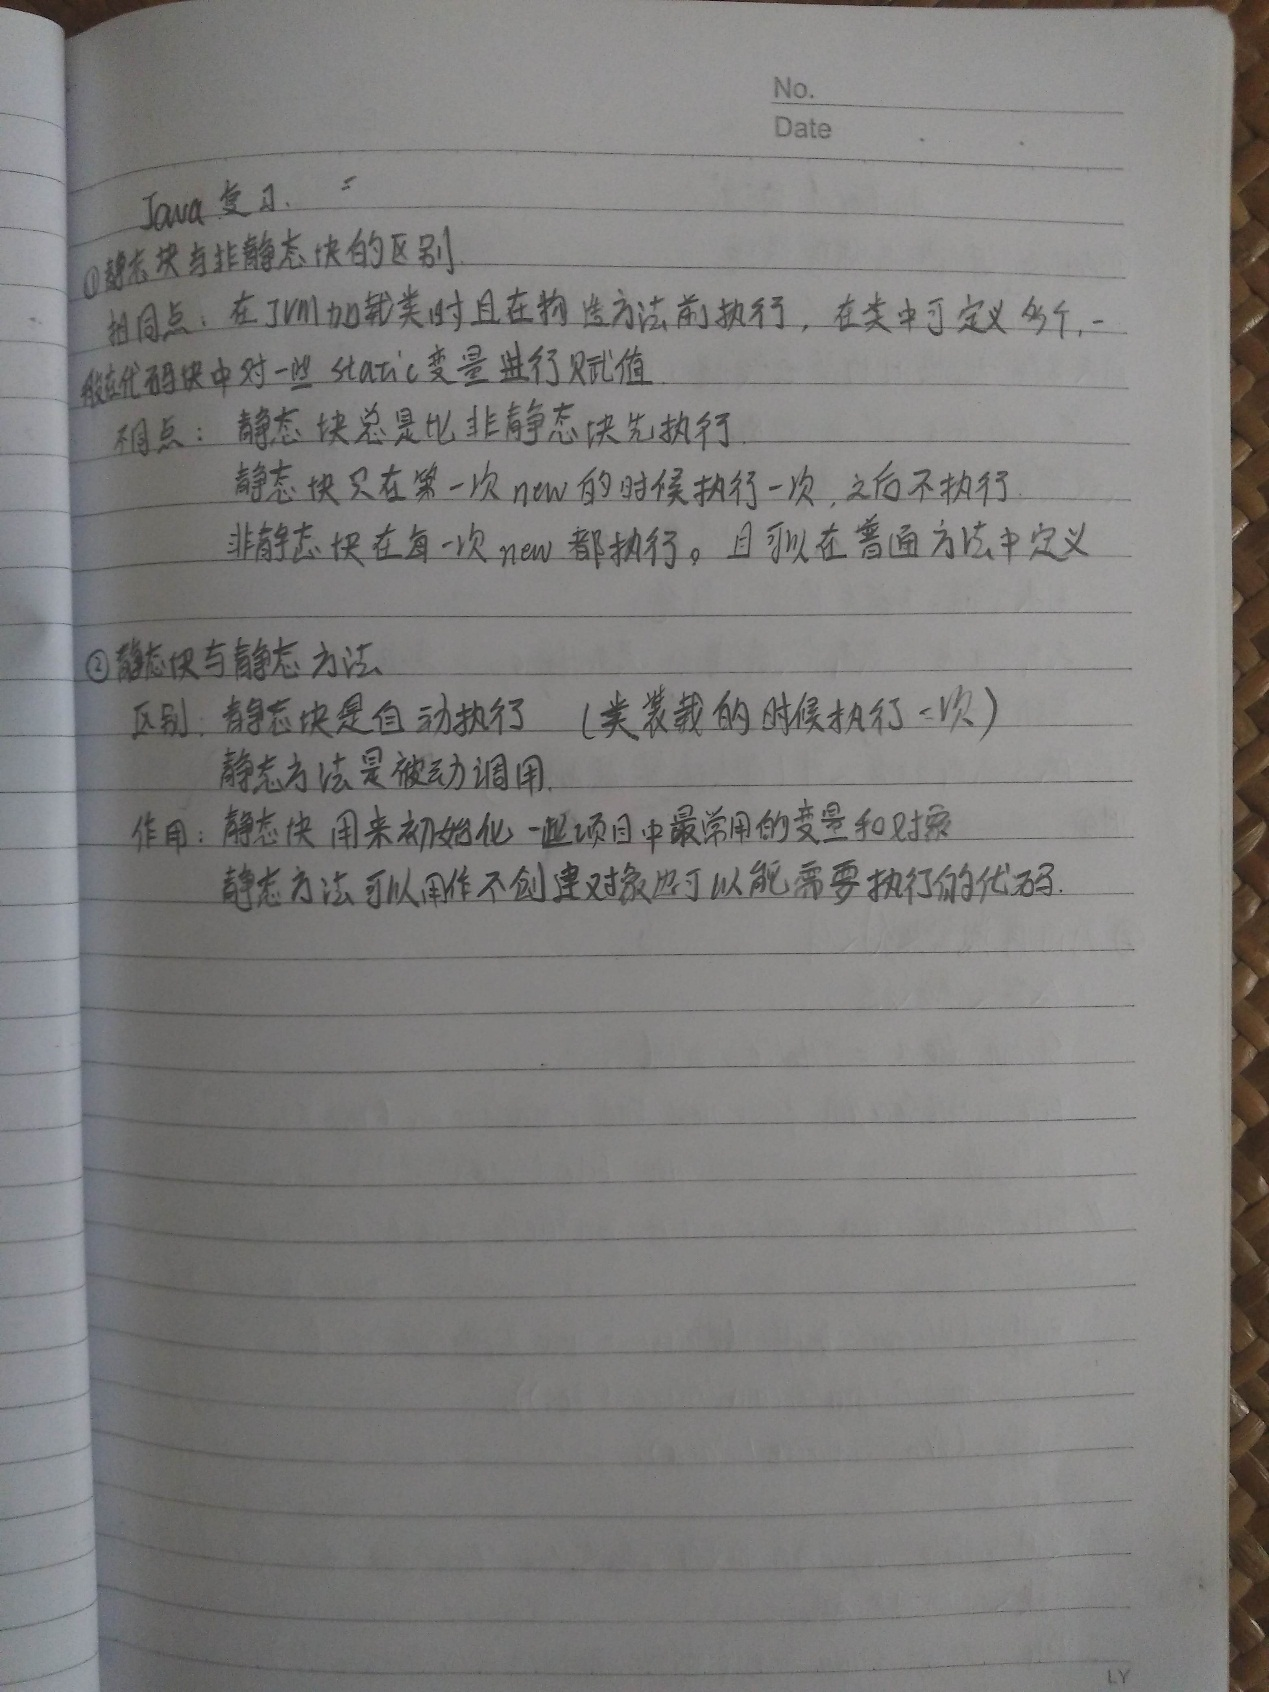 No.
Date
Java 复习. =
①静态块与非静态块的区别.
相同点：在JVM加载类时且在构造方法前执行，在类中可定义多个,一
般在代码块中对一些 static变量进行赋值.
不同点：静态块总是比非静态块先执行.
静态块只在第一次 new 的时候执行一次,之后不执行.
非静态块在每一次 new 都执行。且可以在普通方法中定义
②静态块与静态方法
区别：静态块是自动执行 （类装载的时候执行=次）
静态方法是被动调用.
作用：静态块用来初始化一些项目中最常用的变量和对象
静态方法可以用作不创建对象也可以能需要执行的代码.
LY